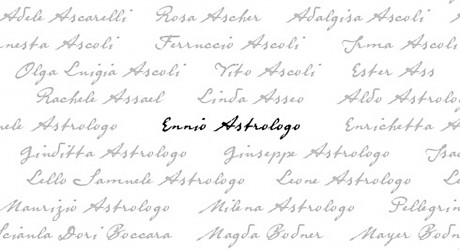 Adele Ascarelli Rosa Ascher Adalgisa Ascoli
nesta Ascoli Ferruccio Ascoli Irma Ascoli
Olga Luigia Ascoli Vito Ascoli Ester Ass
Rachele Assael Linda Asseo Aldo Astrologo
nele Astrologo Ennio Astrologo Enrichetta A
Giuditta Astrologo Giuseppe Astrologo Isac
Lello Samuele Astrologo Leone Astrologo Le
Maurizio Astrologo Milena Astrologo Pellegrin
Sciaula Dori Boccara Magda Bodner Mayer Bodner